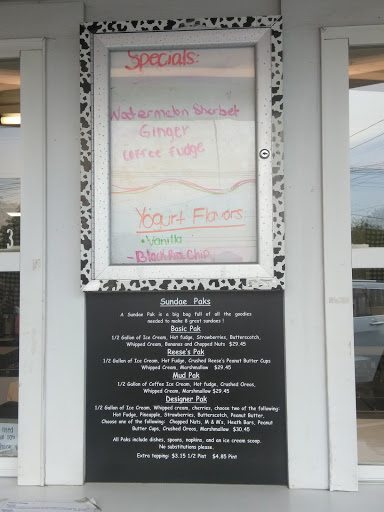 Specials:
Watermelon Sherbet
Ginger
Coffee Fudge
Yogurt Flavors
• Vanilla
- Black Ras. Chip
Sundae Paks
A Sundae Pak is a big bag full of all the goodies
needed to make 8 great sundaes !
Basic Pak
1/2 Gallon of Ice Cream, Hot fudge, Strawberries, Butterscotch,
Whipped Cream, Bananas and Chopped Nuts $29.45
Reese's Pak
1/2 Gallon of Ice Cream, Hot Fudge, Crushed Reese's Peanut Butter Cups
Whipped Cream, Marshmallow $29.45
Mud Pak
1/2 Gallon of Coffee Ice Cream, Hot fudge, Crushed Oreos,
Whipped Cream, Marshmallow $29.45
Designer Pak
1/2 Gallon of Ice Cream, Whipped cream, cherries, choose two of the following:
Hot Fudge, Pineapple, Strawberries, Butterscotch, Peanut Butter,
Choose one of the following: Chopped Nuts, M & M's, Heath Bars, Peanut
Butter Cups, Crushed Oreos, Marshmallow $30.45
All Paks include dishes, spoons, napkins, and an ice cream scoop.
No substitutions please.
Extra topping: $3.15 1/2 Pint $4.85 Pint